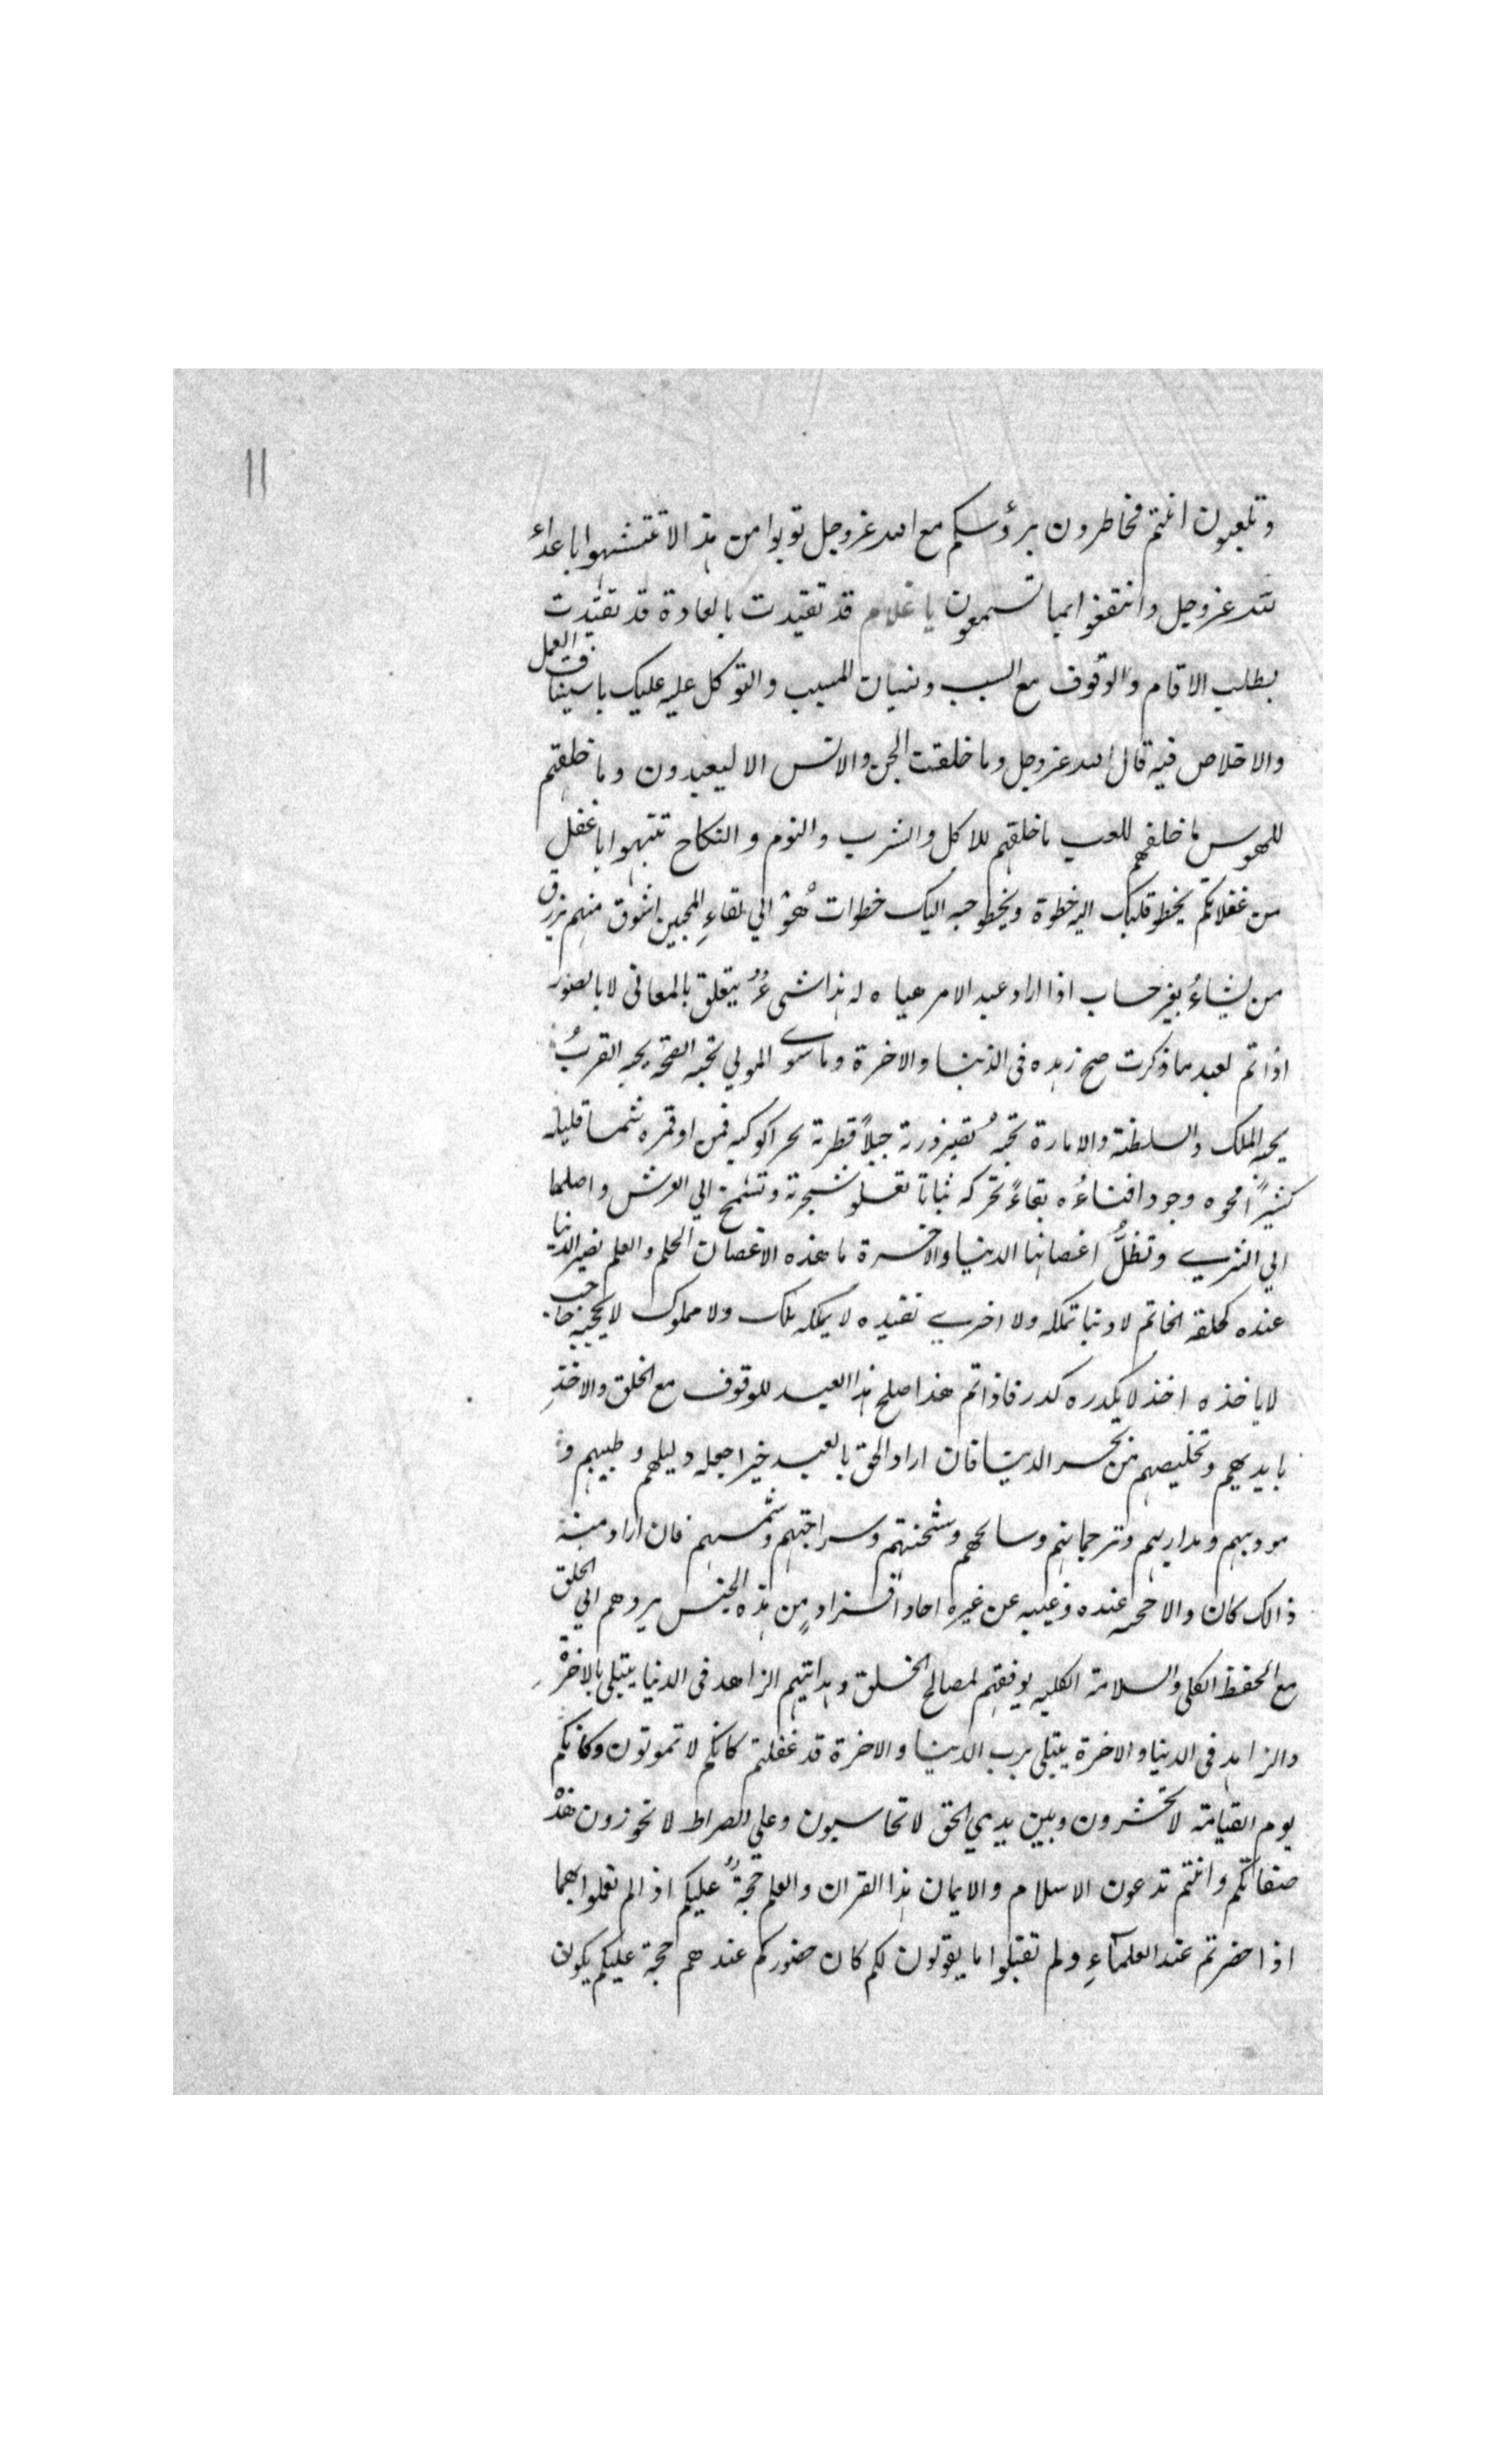 ١١
وتلعبون انتم مخاطرون برؤسكم مع الله عزوجل توبوا من هذا لا تتشبهوا باعداء
لله عزوجل وانتفعوا بما تسمعون يا غلام قد تقيدت بالعادة قد تقيدت
بطلب الاقام والوقوف مع السبب ونسيان المسبب والتوكل عليه عليك باستيناف العمل
والاخلاص فيه قال الله عزوجل وما خلقت الجن والانس الا ليعبدون وما خلقتهم
للهوس ما خلقهم للعب ما خلقهم للاكل والشرب والنوم والنكاح تنبهوا يا غفل
من غفلاتكم يخطو قلبك اليه خطوة ويخطو حبه اليك خطوات هو الي لقاء المحبين اشوق منهم يرزق
من يشاء بغير حساب اذا اراد عبد الامر هياه له هذا شيء يتعلق بالمعاني لا بالصور
اذا تم لعبد ما ذكرت صح زهده في الدنيا والاخرة وما سوى المولي تجيه الصحة يجيه القرب
يجيه الملك والسلطنة والامارة تجيه تصير ذرته جبلاً قطرته بحرا كوكبه قمرا وقمره شمسا قليله
كثيراً محوه وجودا فناءُه بقاءً تحركه ثباتا تعلو شجرته وتشمخ الي العرش واصلها
الي الثري وتظلُّ اغصانها الدنيا والاخرة ما هذه الاغصان الحلم والعلم تصير الدنيا
عنده كحلقة الخاتم لا دنيا تملكه ولا اخري تقيده لا يملكه ملك ولا مملوك لا يحجبه حاجب
لا ياخذه اخذ لا يكدره كدر فاذا تم هذا صلح هذا العبد للوقوف مع الخلق والاخذ
بايديهم وتخليصهم من بحر الدنيا فان اراد الحق بالعبد خيرا جعله دليلهم وطبيبهم و
مودبهم ومداربهم وترجمانهم وسابحهم وشحنتهم وسراجهم وشمسهم فان اراد منه
ذالك كان والا حجبه عنده وغيبه عن غيره احاد افراد من هذه الجنس يردهم الي الخلق
مع الحفظ الكلي والسلامة الكليه يوفقهم لمصالح الخلق وهدايتهم الزاهد في الدنيا يبتلي بالاخرة
والزاهد في الدنيا والاخرة يبتلي برب الدنيا والاخرة قد غفلتم كانكم لا تموتون وكانكم
يوم القيامة لا تحشرون وبين يدي الحق لا تحاسبون وعلي الصراط لا تجوزون هذه
صفاتكم وانتم تدعون الاسلام والايمان هذا القران والعلم حجةٌ عليكم اذا لم تعملوا بهما
اذا حضرتم عند العلمآءِ ولم تقبلوا ما يقولون لكم كان حضوركم عندهم حجة عليكم يكون